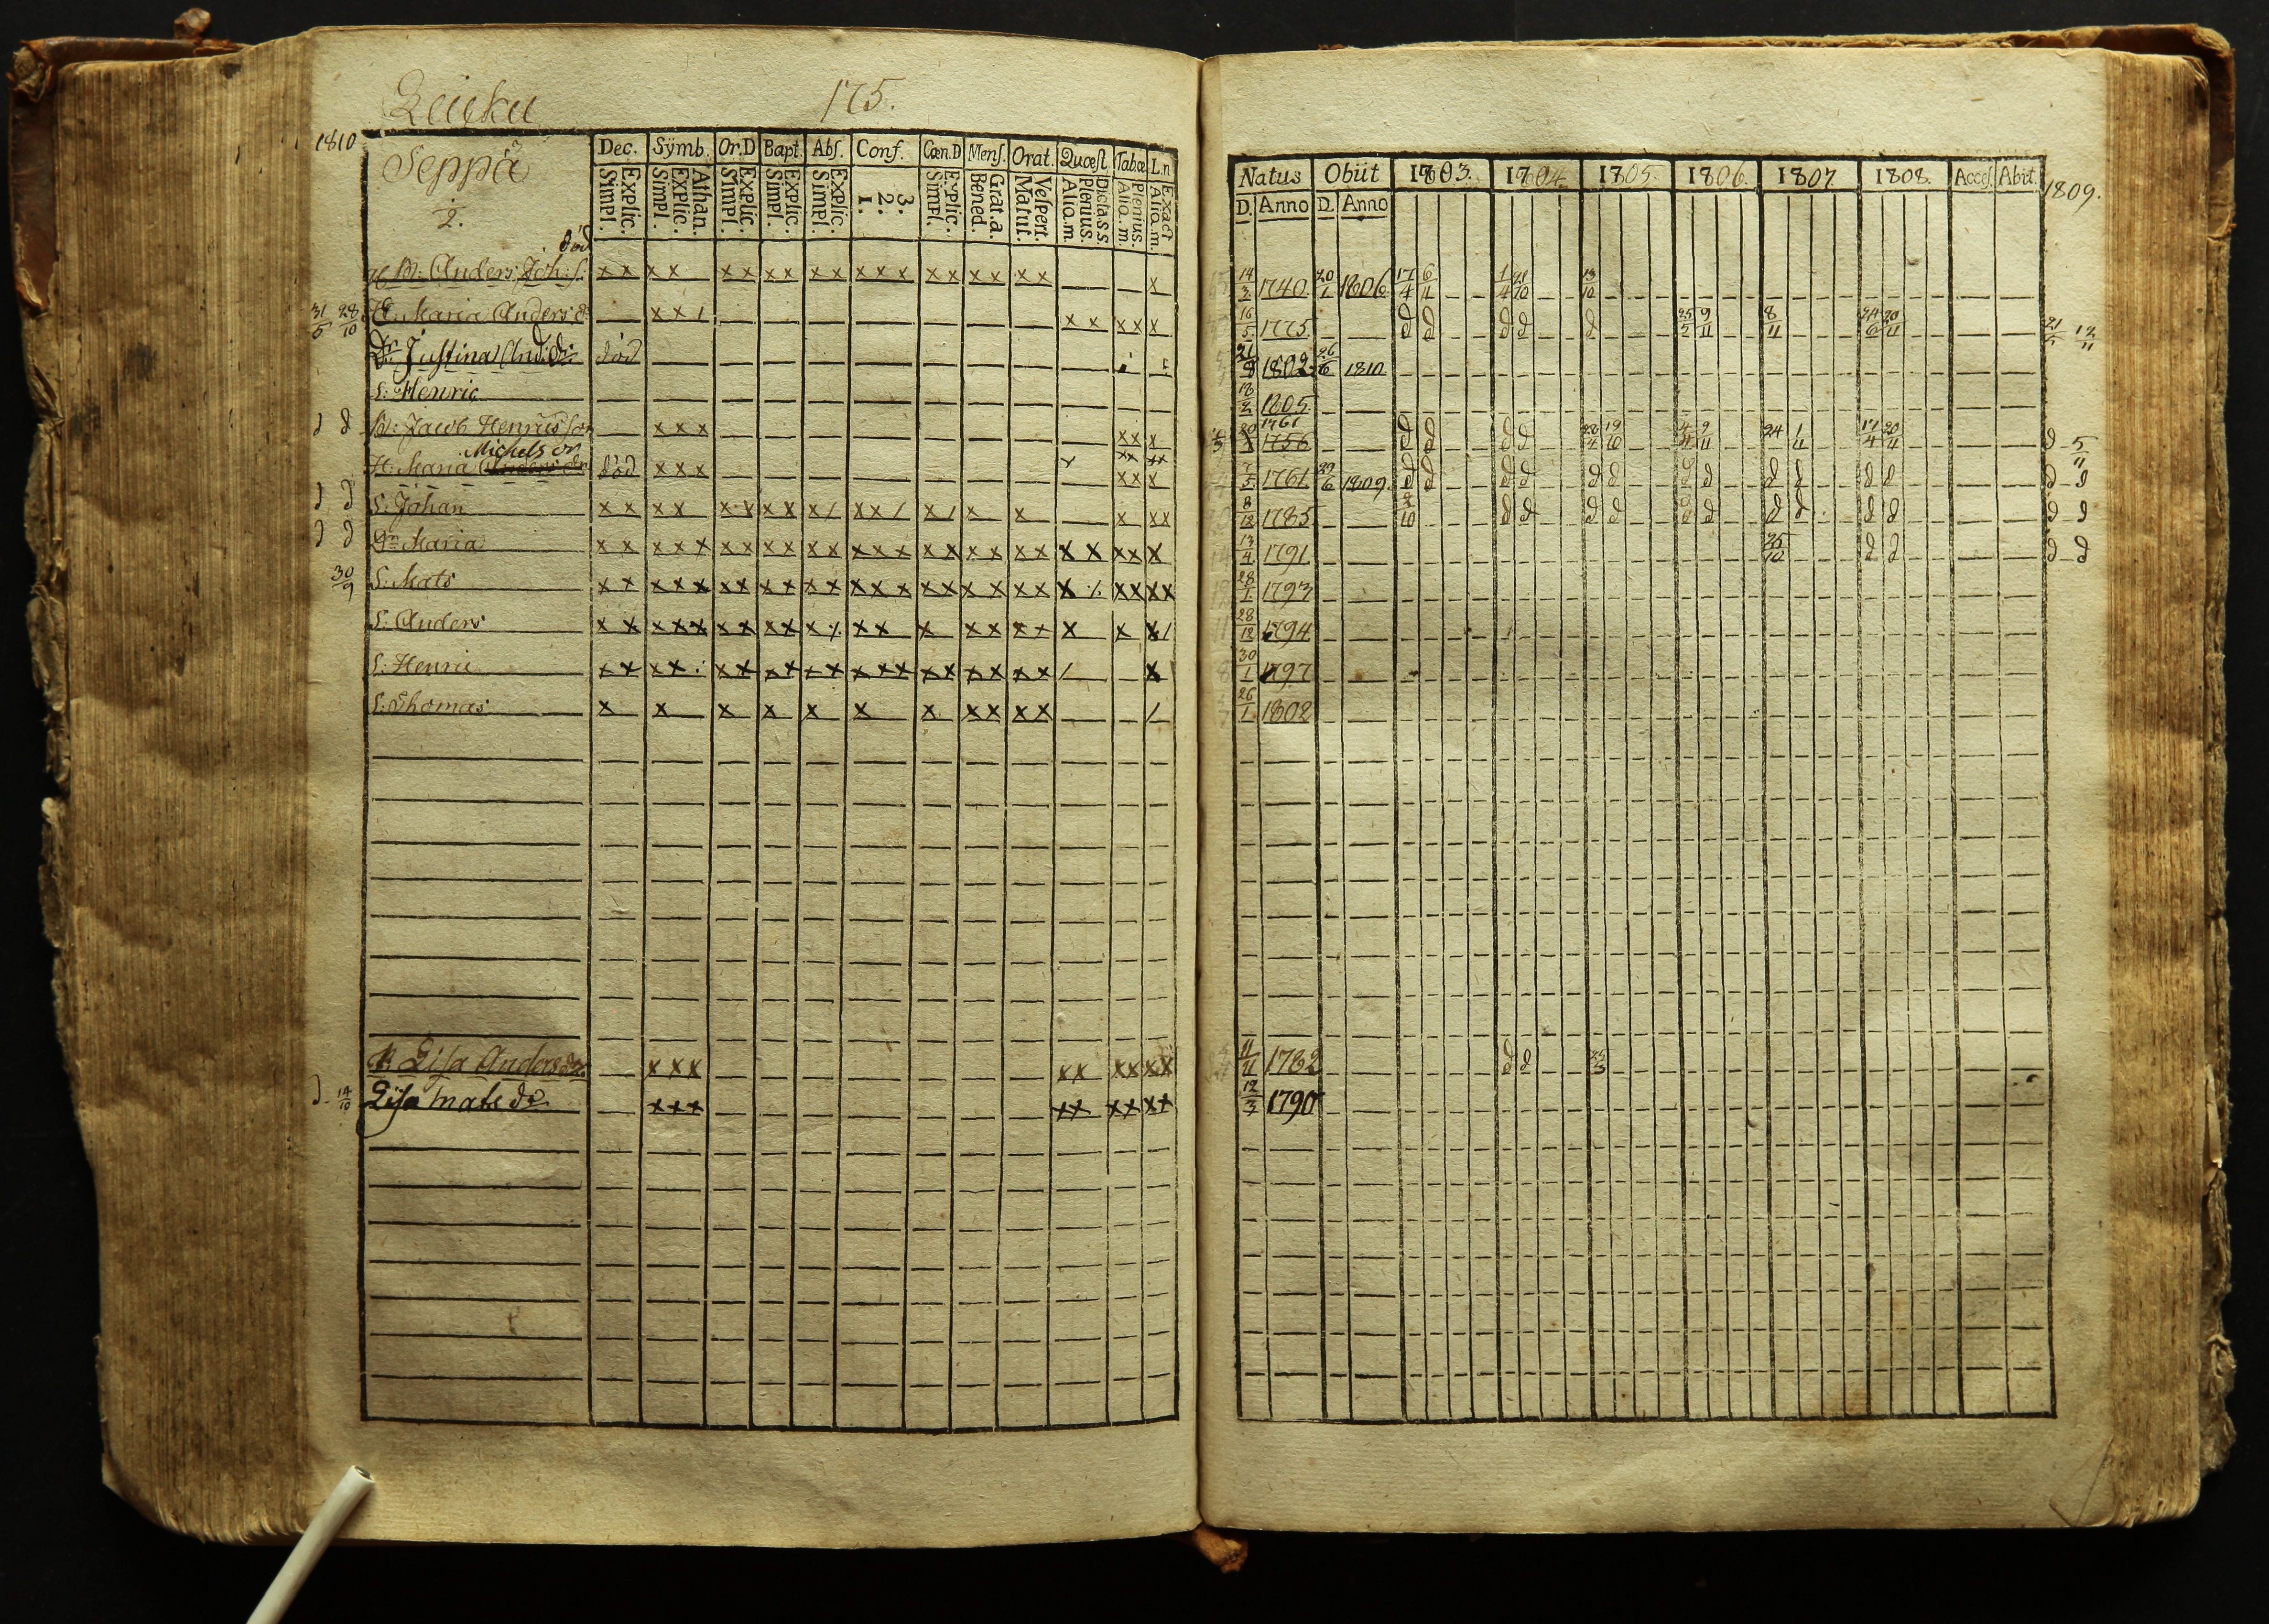 175.
1810
Seppä
2.
Dec. Sÿmb. Or.D Bapt. Abſ. Conf. Cœn.D Menſ. Orat. Quæſt. Tabæ L.n
Explic. Simpl. Athan. Explic. Simpl. Explic. Simpl. Explic. Simpl. Explic. Simpl. 3. 2. 1. Explic. Simpl. Grat.a. Bened. Veſpert. Matut. Dicta.s.s. Plenius. Aliq.m. Plenius. Aliq.m. Exact Aliq.m.
Natus Obiit 1803. 1804. 1805. 1806. 1807. 1808. Acceſ. Abit. 1809.
D. Anno D. Anno
död
Anders Joh: s. x x x x x x x x x x x x x x x x x x x x 14/2 1740 20/1 1806 17/4 6/11 13/10
31/5 28/10 Maria Anders: d: x x / x x x x x 16/5 1775 d d d d d 25/5 9/11 8/11 24/6 20/11
Dr Justina And: dr död 21/8 1802 26/6 1810
S: Henric 18/2 1805
1761
d d B: Jacob Henrics son x x x x x x 1756 d d d d 19/10 9/11 24 1/11 17/4 20/11 d 5/11
Michels dr
H: Maria Anders dr död x x x x x x x 7/5 1761 1809 d d d d d d d d d d d d d d
d d S: Johan x x x x x x x x x / x x / x / x x x x x 8/12 1785 2/10 d d d d d d d d d d d d
d d Dr Maria x x x x x x x x x x x x x x x x x x x x x x x x x 13/4 1791 25/10 d d d d
30/9 S: Mats x x x x x x x x x x x x x x x x x x x x x x x x x 28/1 1793
S: Anders x x x x x x x x x x x x x x x x x x x x x / 28/12 1794
S: Henric x x x x x x x x x x x x x x x x x x x x / x 30/1 1797
S: Thomas x x x x x x x x x x x / 26/1 1802
P. Lisa Anders dr x x x x x x x x x 11/11 1782 d d
d 14/10 Lisa Mats dr x x x x x x x x x 12/3 1790